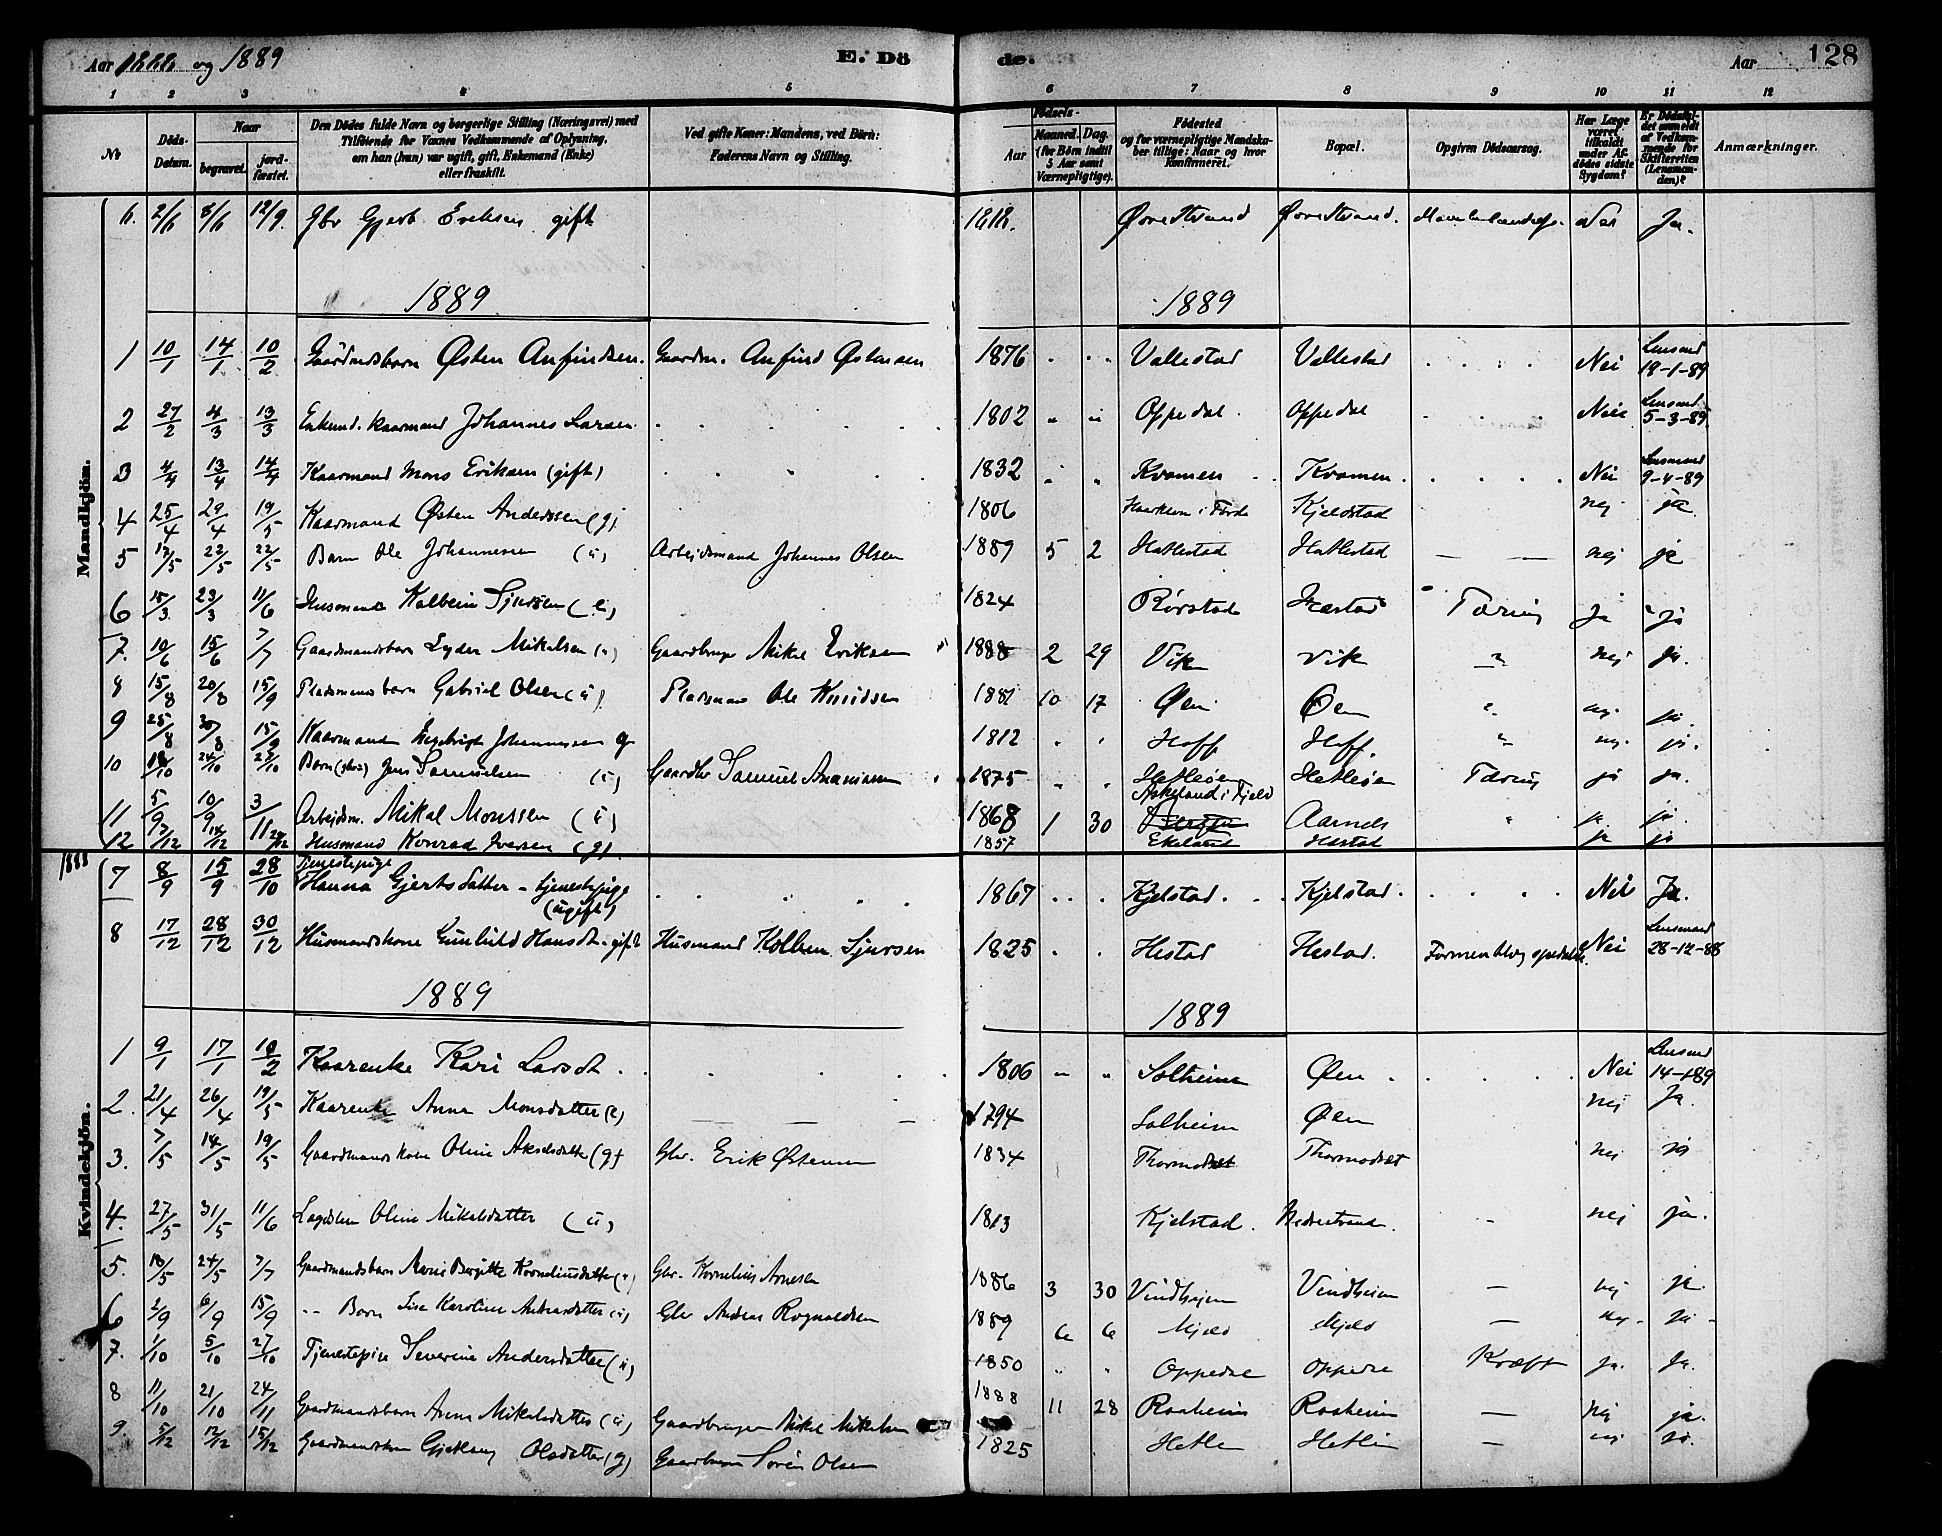 Aar 1888 og 1889 E. Dö
de. Aar 128
1 2 3 4 5 6 7 8 9 10 11 12
No
Döds-Datum.
Naar
begravet.
jordfæstet.
Den Dödes fulde Navn og borgerlige Stilling (Næringsvei) med Tilföiende for Voxnes Vedkommende af Oplysning, om han (hun) var ugift, gift, Enkemand (Enke) eller fraskilt.
Ved gifte Koner: Mandens, ved Börn: Faderens Navn og Stilling.
Födsels-
Aar
Maaned. Dag.
(for Börn indtil 5 Aar samt Værnepligtige).
Födested og for værnepligtige Mandskaber tillige: Naar og hvor konfirmeret.
Bopæl.
Opgiven Dödsaarsag.
Har Læge været tilkaldt under Afdödes sidste Sygdom?
Er Dödsfaldet anmeldt af Vedkommende for Skifteretten (Lensmanden)?
Anmærkninger.
Mandkjön.
6. 2/6 8/6 12/9. Gbr Gjert Eriksen gift 1818. Øvrestrand Øvrestrand. Nei Ja.
1889 1889
1 10/1 14/1 10/2 Gaardmdsbarn Østen Anfindsen. Gaardm. Anfind Østensen 1876 Vallestad Vallestad Nei Lensmd 18-1-89
2 27/2 4/3 13/3 Enkemd. Kaarmand Johannes Larsen 1802 Oppedal Oppedal Nei Lensmd 5-3-89
3 4/4 13/4 14/4 Kaarmand Mons Eriksen (gift) 1832 Kvamen Kvamen Nei Lensmand 9-4-89
4 25/4 29/4 19/5 Kaarmand Østen Anderssen (g) 1806 i Förde Kjeldstad nej ja
5 17/5 22/5 22/5 Barn Ole Johannessen (ü) Arbejdsmand Johannes Olsen 1889 5 2 Hatlestad Hatlestad — — nej ja
6 15/3 23/3 11/6 Husmand Kolbein Sjursen (e) 1824 Rörstad Hæstad Tæring ja ja
7. 10/6 15/6 7/7 Gaardmandsbarn Lyder Mikelsen (ü) Gaardbruger Mikel Eriksen 1888 2 29 Vik Vik " nej ja.
8 15/8 20/8 15/9 Pladsmands barn Gabriel Olsen (ü) Pladsmand Ole Knudsen 1881 10 17 Øen Øen " nej. ja.
9 25/8 30/8 15/9 Kaarmand Engebrigt Johannessen g 1812 Hoff Hoff. " nej. ja.
10 18/10 24/10 27/10 Barn Jens Samuelsen (ü) Gaardbr Samuel Ananiasen 1875 Hetleöen Hetleöen Tæring ja ja.
11 5/9 10/9 3/11 Arbejdsm. Mikal Monssen (ü) 1868 1 30 Askeland i Fjeld Aarnes " ja. ja.
12 7/12 14/12 27/12 Husmand Konrad Iversen (g) 1857 Ekeland Hestad ja ja
1888
Kvindekjön.
7 8/9 15/9 28/10 Tjenestepige Hanna Gjerts datter – tjenestepige (ugift) 1867 Kjelstad. Kjelstad. Nei Ja.
8 17/12 28/12 30/12 Husmandskone Gunhild Hansdt. gift Husmand Kolben Sjursen 1825 Hestad Hestad. Nei Lensmand 28-12-88
1889 1889
1 9/1 17/1 10/2 Kaarenke Kari Larsdt. 1806 Solheim Øen. Nei Lensmd 14-1-89
2. 21/4 26/4 19/5 Kaarenke Anna Monsdatter (e) 1794 Solheim Øen nej Ja.
3. 7/5 14/5 19/5 Gaardmands kone Oline Akselsdatter (g) Gbr. Erik Østensen 1834 Thormodset Thormodset nej ja
4. 27/5 31/5 11/6 Oline Mikalsdatter (ü) 1813 Kjelstad. Nedrestrand. — nej ja.
5. 18/5 24/5 7/7 Gaardmandsbarn Bergitte Korneliusdatter (ü) Gbr. Kornelius Arnesen 1886 3 30 Vindhejm Vindheim — nej ja
6 2/9 6/9 15/9 -- Barn Lise Karoline Andersdatter (ü) Gbr Anders Rognaldsen 1889 6 6 Mjeld Mjeld — nej. ja.
7. 1/10 5/10 27/10 Tjenestepige Severine Andersdatter (ü) 1850 Oppedal Oppedal Kræft ja. ja.
8 11/10 21/10 24/11 Gaardmandsbarn Anna Mikalsdatter (ü) Gaardbruger Mikal Mikelsen 1888 11 28 Raaheim Raaheim — nej ja.
9. 5/12 12/12 15/12 Gaardmandskone Gjertlaug Olsdatter (g) Gaardbruger Sören Olsen 1825 Hetle Hetle — nej ja.